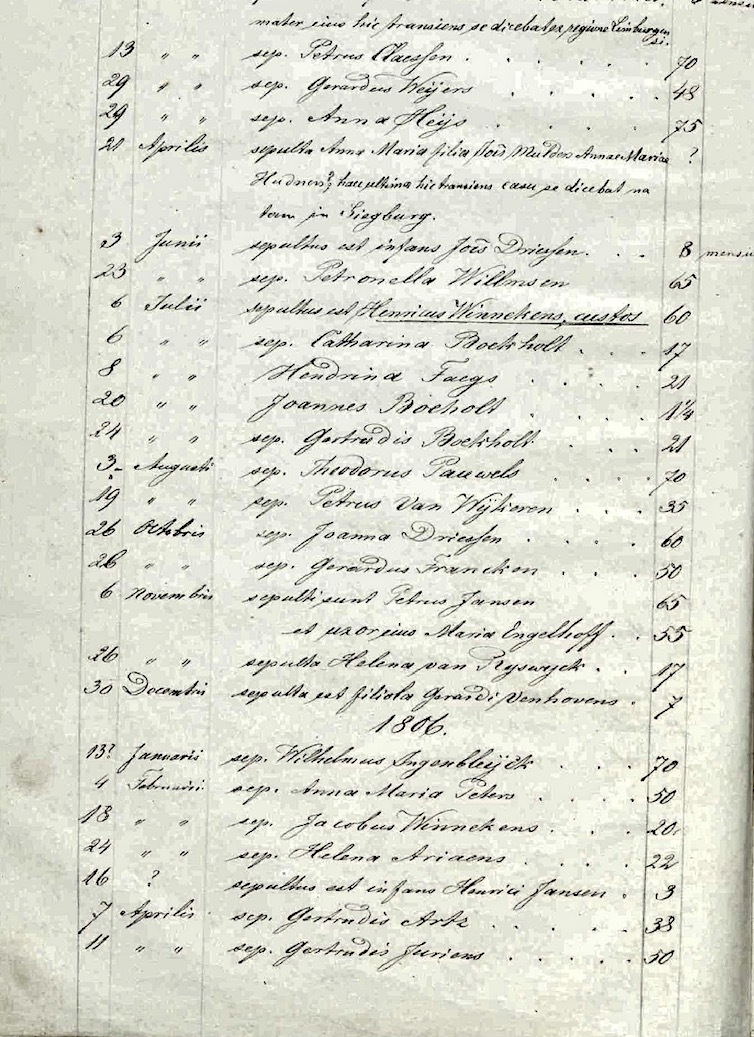 mater eius hic transiens se dicebat ex regione Limburgen
si.
13 " " sep. Petrus Claessen . . . . . 70
29 " " sep. Gerardus Weijers . . . . 48
29 " " sep. Anna Heijs . . . . 75
21 Aprilis sepulta Anna Maria filia Jois Mulder Annae Mariae ?
hic transiens casu se dicebat na
tam in Siegburg.
3 Junii sepultus est infans Jois Driessen. . . 8 mensiu
23 " " sep. Petronella Willmsen 65
6 Julii sepultus est Henricus Winnekens, custos 60
6 " " sep. Catharina Boekholt . . . 17
8 " " Hendrina Faegs . . . . 21
20 " " Joannes Bocholt . . . . 1 1/4
24 " " sep. Gertrudis Boekholt . . . 21
3 Augusti sep. Theodorus Pauwels . . . 70
19 " " sep. Petrus Van Wijkeren . . . 35
26 Octobris sep. Joanna Driessen . . . . 60
26 " " sep. Gerardus Francken . . . 50
6 Novembris sepulti sunt Petrus Jansen 65
et uxor eius Maria Engelhoff . . 55
26 " " sepulta Helena van Ryswyck . . 17
30 Decembris sepulta est filiola Gerardi Venhovens . 7
1806.
13? Januaris sep. Wilhelmus Ingenbleyck . . 70
4 Februarii sep. Anna Maria Peters . . . . 50
18 " " sep. Jacobus Winnekens . . . . 20
24 " " sep. Helena Ariaens . . . . 22
16 ? sepultus est infans Henrici Jansen . 3
7 Aprilis sep. Gertrudis Artz . . . . . 38
11 " " sep. Gertrudis Juriens . . . . . 50